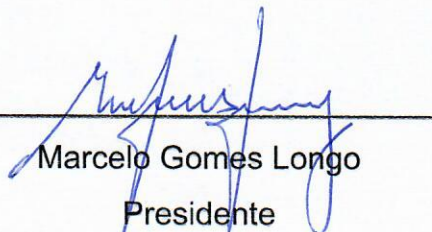 Marcelo Gomes Longo
Presidente